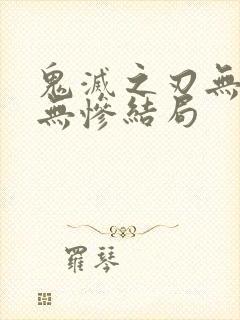 鬼滅之刃無
無慘結局
羅琴